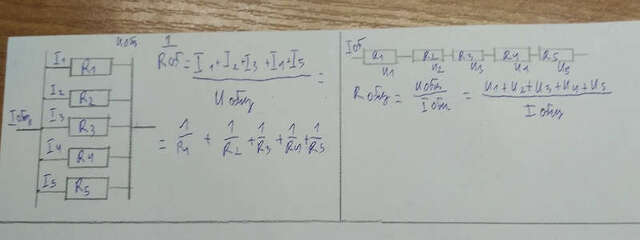 U общ
I1 R1
I2 R2
I3 R3
I4 R4
I5 R5
I общ
1/R об = (I1+I2+I3+I4+I5)/U общ =
= 1/R1 + 1/R2 + 1/R3 + 1/R4 + 1/R5
I об R1 R2 R3 R4 R5
U1 U2 U3 U4 U5
R общ = U общ/I общ = (U1+U2+U3+U4+U5)/I общ